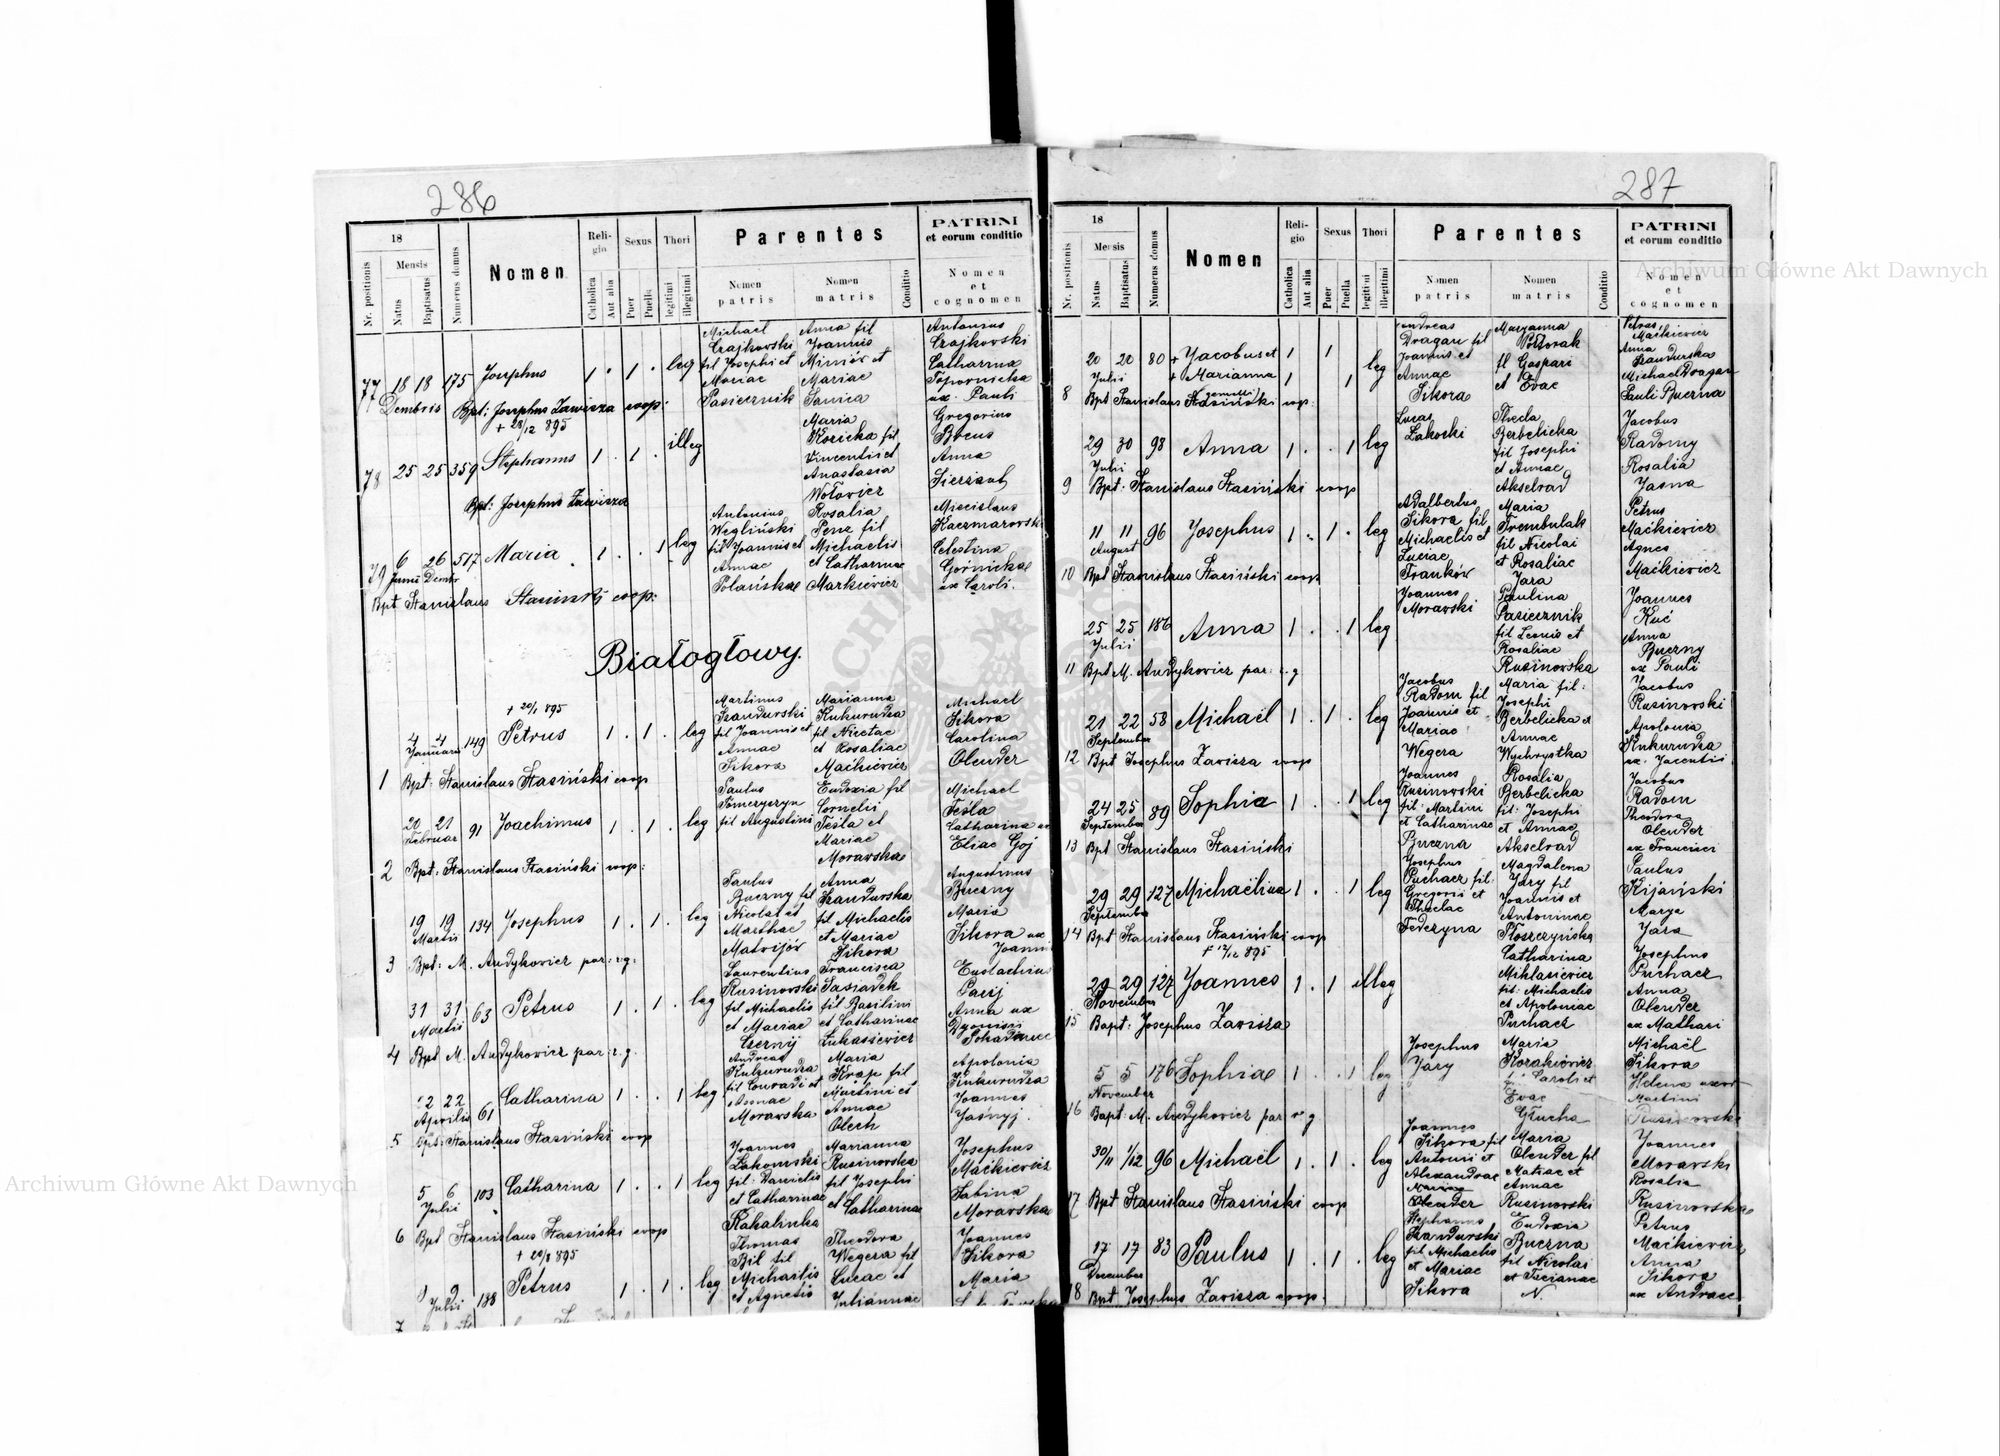 286
18
Mensis
Nr. positionis
Natus
Baptisatus
Numerus domus
Nomen
Religio
Catholica
Aut alia
Sexus
Puer
Puella
Thori
legitimi
illegitimi
Parentes
Nomen patris
Nomen matris
Conditio
PATRINI
et eorum conditio
Nomen
et
cognomen
77 18 18 175 Josephus 1 . 1 . leg
Dembris Bpt: Josephus Zawisza coop:
+ 28/12 895
Michael
Czajkowski
fil Josephi et
Mariae
Pasiecznik
Anna fil
Joannis
Miniór et
Mariae
Sanica
Antonius
Czajkovski
Catharina
Topornicka
ux. Pauli
78 25 25 359 Stephanus 1 . 1 . illeg
Bpt: Josephus Zawisza
Maria
Kozicka fil
Vincentii et
Anastasia
Wołowicz
Gregorius
Bocus
Anna
Sierżant
79 6 26 517 Maria 1 . . 1 leg
Bpt Stanislaus Stasiński coop:
Antonius
Węgliński
fil Joannis et
Annae
Polańskae
Rosalia
Penz fil
Michaelis
et Catharinae
Markiewicz
Miecislaus
Kaczmarowski
Celestina
Górnickae
ux Caroli.
Białogłowy.
+ 20/1 895
4 4 149 Petrus 1 . 1 . leg
Januari
1 Bpt: Stanislaus Stasiński coop
Martinus
Szandurski
fil Joannis et
Annae
Sikora
Marianna
Kukurudza
fil Nicetae
et Rosaliae
Maćkiewicz
Michael
Sikora
Carolina
Olender
20 21 91 Joachimus 1 . 1 . leg
Februar
2 Bpt: Stanislaus Stasiński coop:
Paulus
fil Augustini
Eudoxia fil
Cornelii
Tesla et
Mariae
Moravskae
Michael
Tesla
Catharina ux
Eliae Goj
19 19 134 Josephus 1 . 1 . leg
Martii
3 Bpt: M. Andykovicz par: r.g.
Paulus
Buczny fil
Nicolai et
Marthae
Matvijów
Anna
Szandurska
fil Michaelis
et Mariae
Sikora
Augustinus
Buczny
Maria
Sikora ux
Joannis
31 31 63 Petrus 1 . 1 . leg
Martii
4 Bpt. M. Andykovicz par: r.g.
Laurentius
Rusinovski
fil Michaelis
et Mariae
Czernij
Francisca
Sasiadek
fil Basilini
et Catharinae
Łukasiewicz
Eustachius
Parij
Anna ux
Dyonisii
22 22 61 Catharina 1 . . 1 leg
Aprilis
5 Bpt: Stanislaus Stasiński coop
Andreas
Kukurudza
fil Conradi et
Annae
Moravska
Maria
Krap fil
Martini et
Annae
Olech
Apolonia
Kukurudza
Joannes
Jaśnyj.
5 6 103 Catharina 1 . . 1 leg
Julii
6 Bpt Stanislaus Stasiński coop
Joannes
Zakomski
fil. Danielis
et Catharinae
Kakalinka
Marianna
Rusinovska
fil Josephi
et Catharinae
Josephus
Maćkievicz
Sabina
Moravskae
+ 20/8 895
9 188 Petrus 1 . 1 . leg
Julii
7
Thomas
Bil fil
Michailis
et Agnetis
Theodora
Wegera fil
Lucae et
Juliannae
Joannes
Sikora
Maria
287
18
Mensis
Nr. positionis
Natus
Baptisatus
Numerus domus
Nomen
Religio
Catholica
Aut alia
Sexus
Puer
Puella
Thori
legitimi
illegitimi
Parentes
Nomen patris
Nomen matris
Conditio
PATRINI
et eorum conditio
Nomen
et
cognomen
20 20 80 + Jacobus et 1 1 leg
Julii + Marianna 1 1
gemelli
8 Bpt Stanislaus Stasiński coop:
Andreas
Dragan fil
Joannis et
Annae
Sikora
Maryanna
Półtorak
fl Gaspari
et Evae
Petrus
Maćkievicz
Anna
Szandurska
Michael Dragan
Pauli Buczna
29 30 98 Anna 1 . . 1 leg
Julii
9 Bpt. Stanislaus Stasiński coop
Lucas
Zakoski
Thecla
Berbelicka
fil Josephi
et Annae
Akselrad
Jacobus
Radomy
Rosalia
Jasna
11 11 96 Josephus 1 . 1 . leg
August
10 Bpt Stanislaus Stasiński coop
Adalbertus
Sikora fil
Michaelis et
Luciae
Franków
Maria
Trembulak
fil Nicolai
et Rosaliae
Jara
Petrus
Maćkievicz
Agnes
Maćkievicz
25 25 186 Anna 1 . . 1 leg
Julii
11 Bpt M. Andykovicz par: r.g
Joannes
Moravski
Paulina
Pasiecznik
fil Leonis et
Rosaliae
Rusinovska
Joannes
Kuć
Anna
Buczny
ux Pauli
21 22 58 Michaël 1 . 1 . leg
September
12 Bpt Josephus Zavisza coop
Jacobus
Radom fil
Joannis et
Mariae
Wegera
Maria fil:
Josephi
Berbelicka et
Annae
Wychrystka
Jacobus
Rusinovski
Apolonia
Kukurudza
ux. Jacentii
24 25 89 Sophia 1 . . 1 leg
September
13 Bpt Stanislaus Stasiński
Joannes
Rusinovski
fil. Martini
et Catharinae
Buczna
Rosalia
Berbelicka
fil: Josephi
et Annae
Akselrad
Jacobus
Radom
Theodora
Olender
ux Francisci
29 29 127 Michaëlina 1 . . 1 leg
September
14 Bpt Stanislaus Stasiński coop
Josephus
Puchacz fil.
Gregorii et
Theclae
Federyna
Magdalena
Jary fil
Joannis et
Antoninae
Płoszczyńska
Paulus
Kijański
Marya
Jara
29 29 127 Joannes 1 . 1 illeg
November
15 Bapt: Josephus Zavisza
Catharina
Miklasievicz
fil: Michaelis
et Apoloniae
Puchacz
Josephus
Puchacz
Anna
Olender
ux Mathari
5 5 176 Sophiae 1 . . 1 leg
November
16 Bapt: M. Andykovicz par r g
Josephus
Jary
Maria
Kozakievicz
Caroli et
Evae
Głucha
Michaël
Sikora
Helena uxor
Martini
Rusinovski
30/11 1/12 96 Michaël 1 . 1 . leg
17 Bpt Stanislaus Stasiński coop
Joannes
Sikora fil
Antoni et
Alexandrae
Olender
Maria
Olender fil
Matiae et
Annae
Rusinovski
Joannes
Moravski
Rosalia
Rusinovskae
17 17 83 Paulus 1 . 1 . leg
December
18 Bpt Josephus Zavisza coop.
Stephanus
Szandurski
fil Michaelis
et Mariae
Sikora
Eudoxia
Buczna
fil Nicolai
et Tacianae
N.
Petrus
Maćkievicz
Anna
Sikora
ux Andreae
Archiwum Główne Akt Dawnych
Archiwum Główne Akt Dawnych